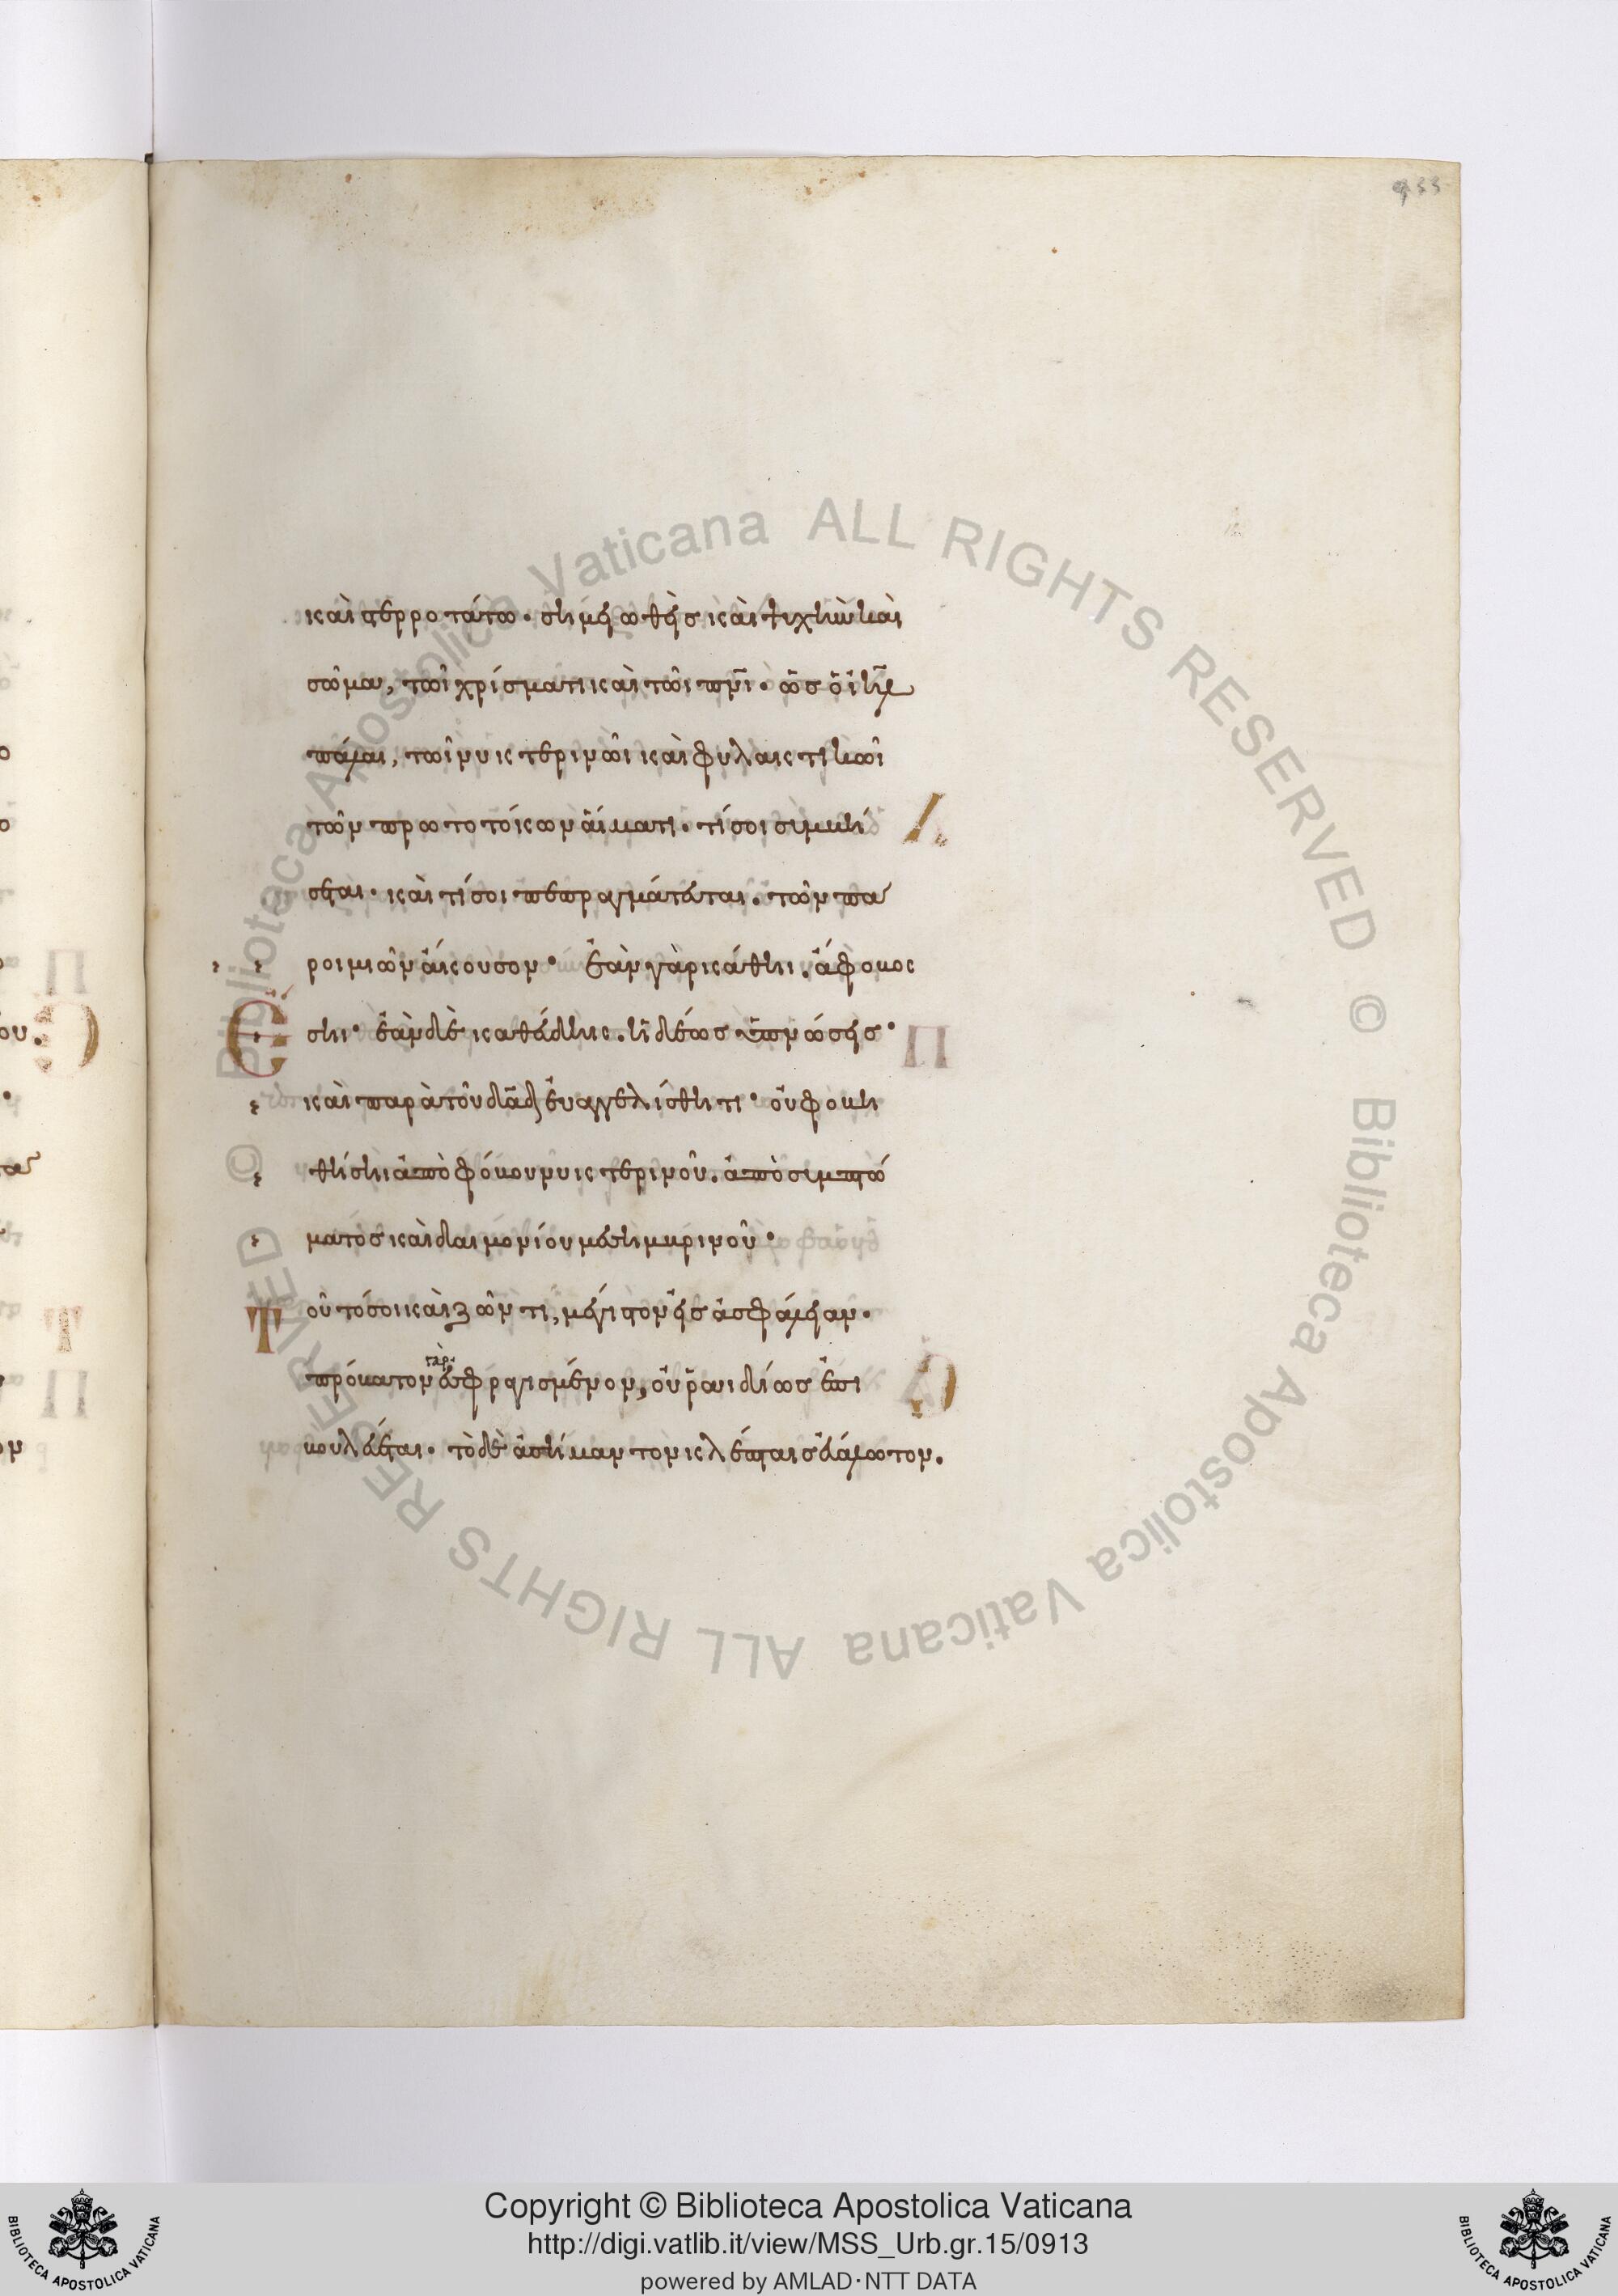 933
καὶ στερροτάτω· σημειωθεὶς καὶ ψυχὴν καὶ
σῶμα, τῶι χρίσματι καὶ τῶι πνι· ὡς ὁ ιηλ
πάλαι, τῶι νυκτερινῶι καὶ φυλακτικῶι
τῶν πρωτοτόκων αἵματι· τί σοι συμβή
σεται· καὶ τί σοι πεπραγμάτευται. τῶν πα
ροιμιῶν ἄκουσον· ἐὰν γὰρ κάθηι. ἄφοβος
ἔσηι· ἐὰν δὲ καθεύδηις. ἡδέως ὑπνώσεις·
καὶ παρὰ τοῦ δαδ εὐαγγελίσθητι· οὐ φοβη
θήσηι ἀπὸ φόβου νυκτερινοῦ. ἀπὸ συμπτώ
ματος καὶ δαιμονίου μεσημβρινοῦ·
Τοῦτό σοι καὶ ζῶντι, μέγιστον εἰς ἀσφάλειαν·
πρόβατον γὰρ ἐσφραγισμένον, οὐ ῥαιδίως ἐπι
βουλεύεται· τὸ δὲ ἀσήμαντον κλέπταις εὐάλωτον.
Copyright © Biblioteca Apostolica Vaticana
http://digi.vatlib.it/view/MSS_Urb.gr.15/0913
powered by AMLAD·NTT DATA
BIBLIOTECA APOSTOLICA VATICANA
BIBLIOTECA APOSTOLICA VATICANA
© Biblioteca Apostolica Vaticana ALL RIGHTS RESERVED
© Biblioteca Apostolica Vaticana ALL RIGHTS RESERVED